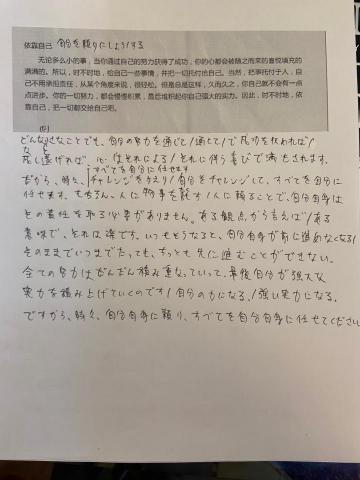 依靠自己 自分を頼りにしようする
无论多么小的事，当你通过自己的努力获得了成功，你的心都会被随之而来的喜悦填充的
满满的。所以，时不时地，给自己一些事情，并把一切托付给自己。当然，把事托付于人，自
己不用承担责任，从某个角度来说，很轻松。但是总是这样，久而久之，你自己就不会有一点
点进步。你的一切努力，都会慢慢积累，最后堆积起你自己强大的实力。因此，时不时地，依
靠自己，把一切都交给自己吧。
どんな小さなことでも、自分の努力を通じて/通して/で成功を収めれば/
成し遂げれば、心はそれによる/それに伴う喜びで満たされます。
すべてを自分に任せます
だから、時々、チャレンジを与え/自分をチャレンジして、すべてを自分に
任せます。もちろん、人に物事を託す/人に頼ることで、自分自身は
その責任を取る必要がありません。ある観点から言えば/ある
意味で、それは楽です。いつもそうなると、自分自身が前に進めなくなる/
そのままでいつまでたっても、ちっとも先に進むことができない。
全ての努力はだんだん積み重なっていって、最後自分が強大な
実力を積み上げていくのです/自分の力になる/強い実力になる。
ですから、時々、自分自身に頼り、すべてを自分自身に任せてください